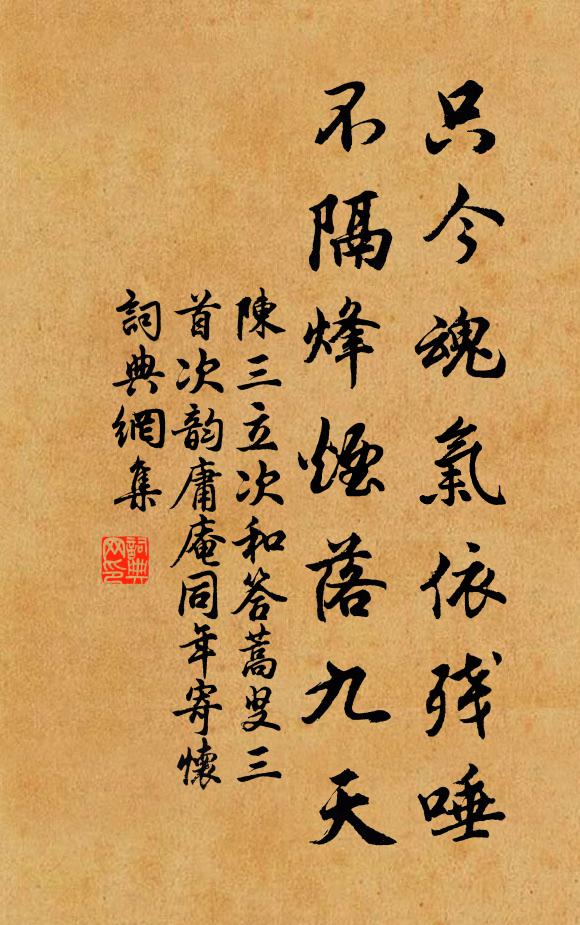 只今魂氣依残唾
不隔烽煙落九天
陳三立次和答蒿叟三
首次韵庸庵同年寄懷
詞典網集
詞典网印